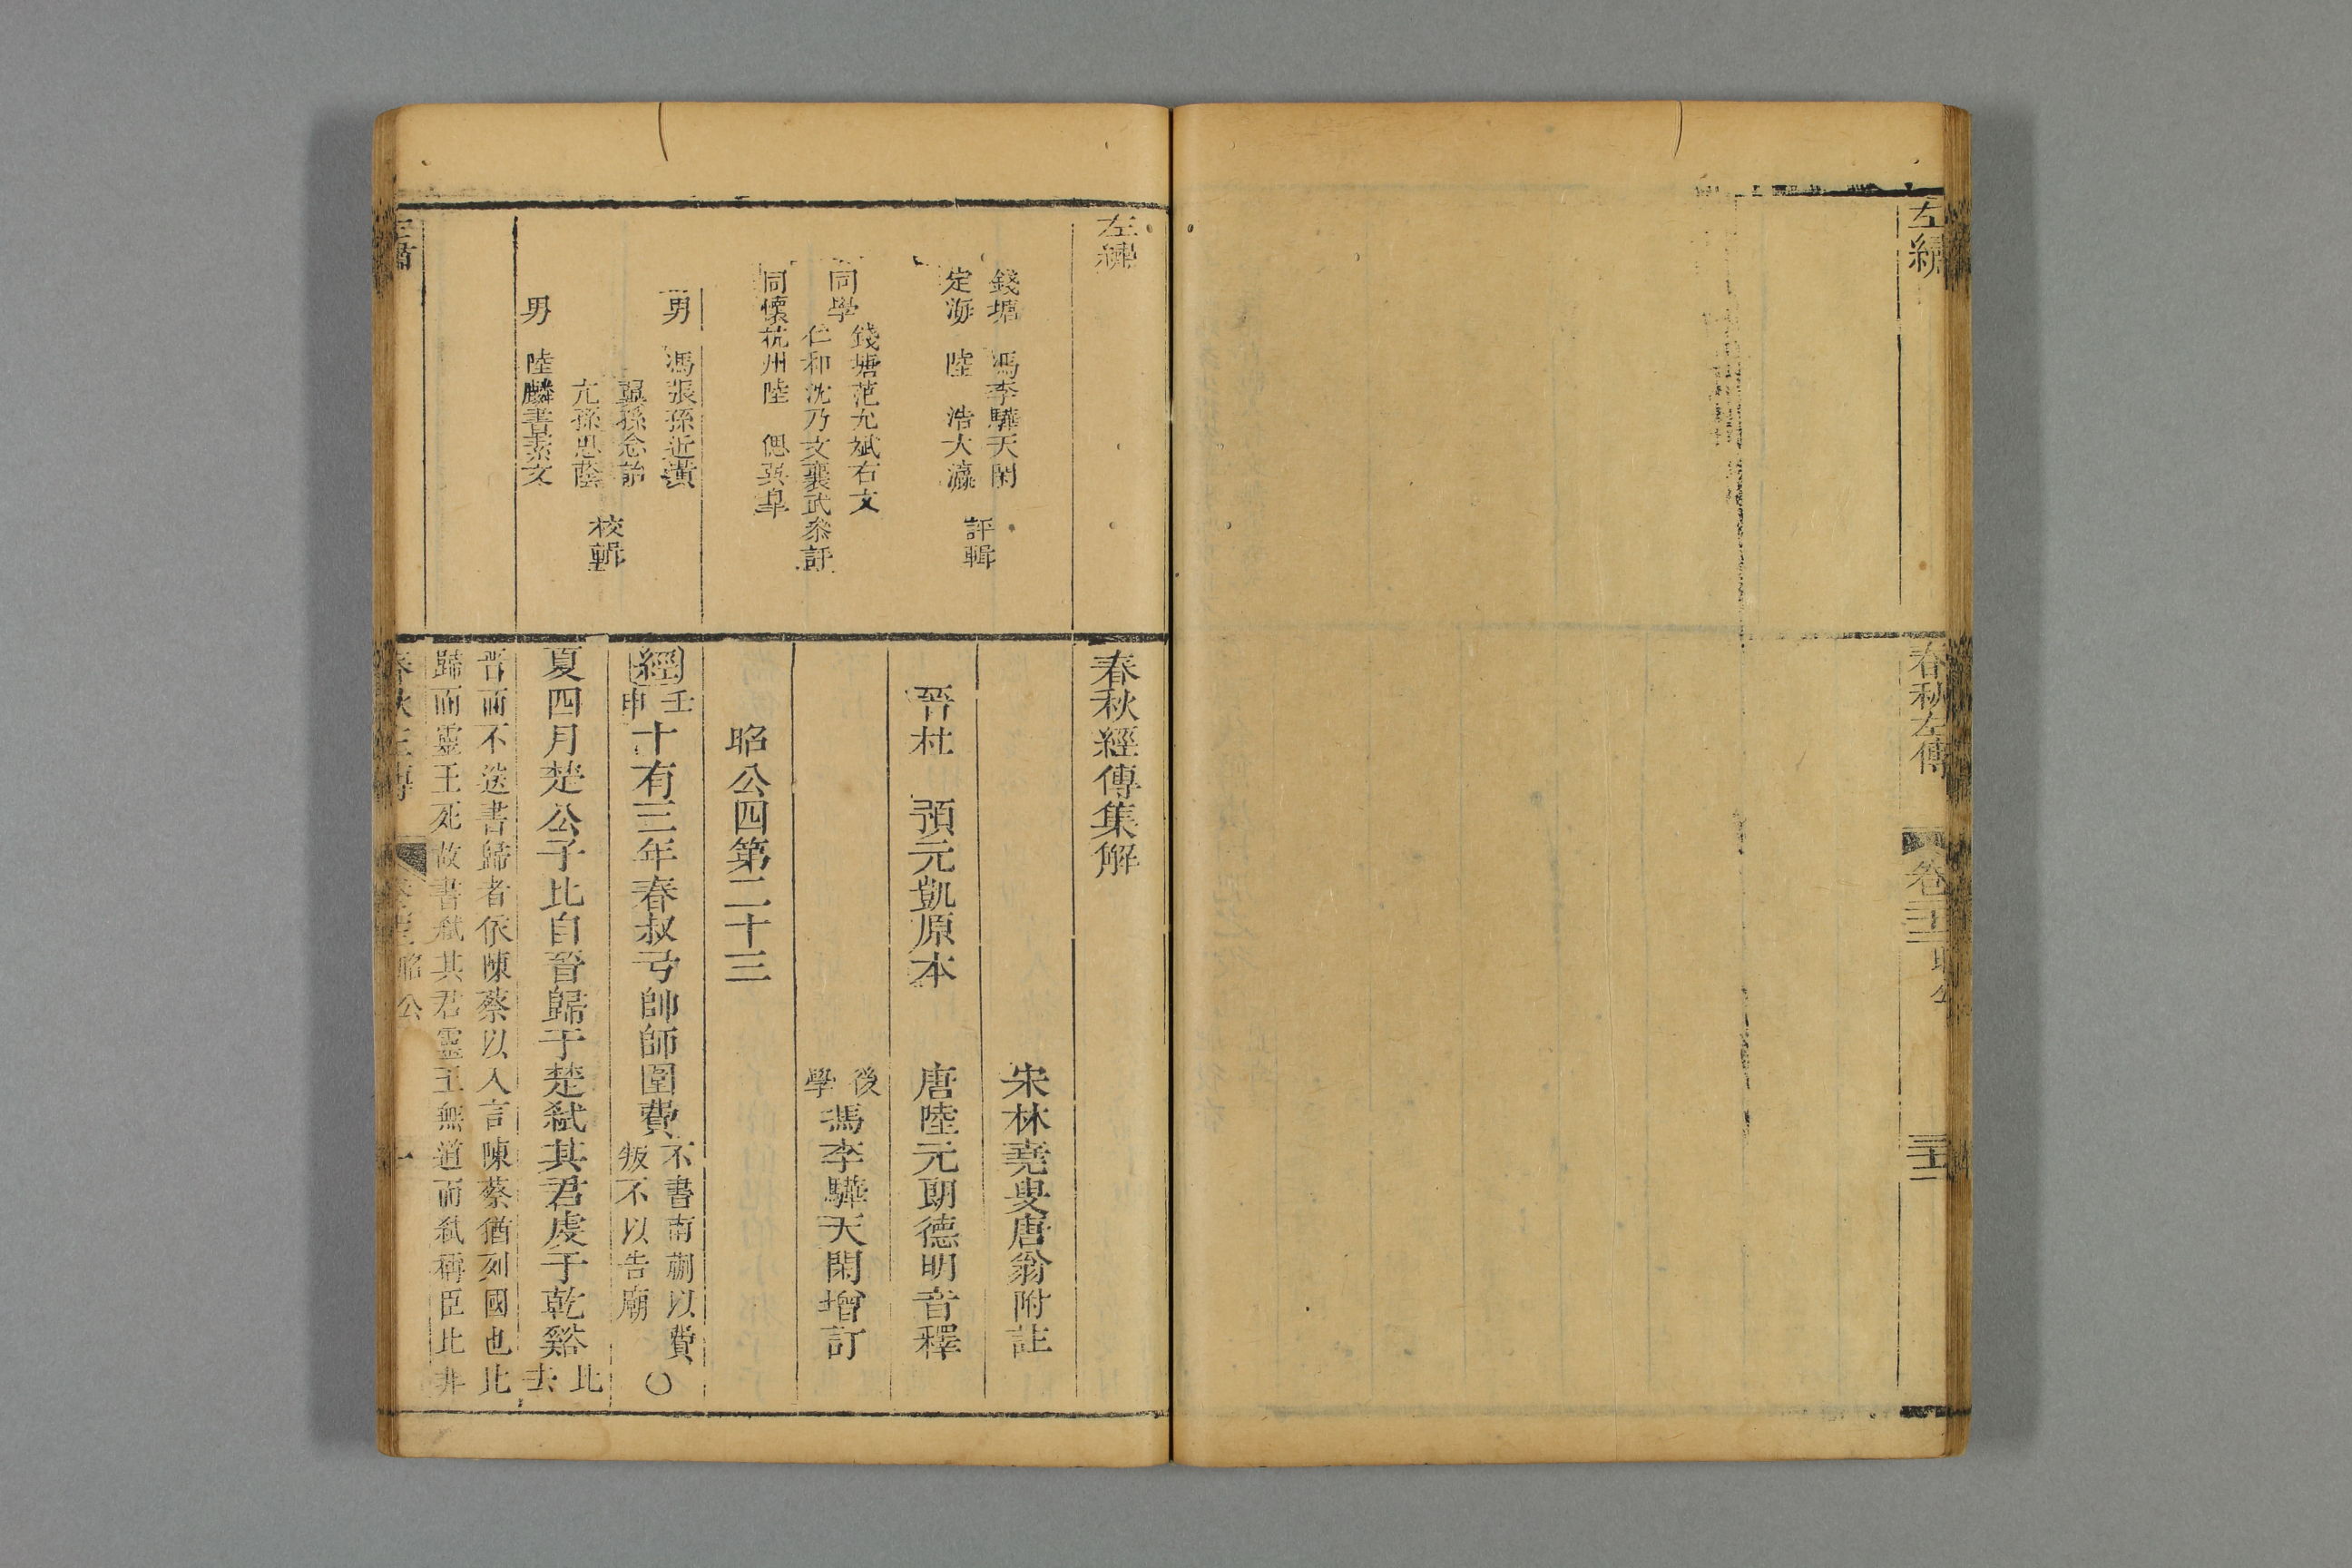 左繡
春秋左傳
卷二十二
昭公
三十二
左繡
錢塘 馮李驊天閑
定海 陸 浩大瀛
評輯
同學
錢塘范允斌右文
仁和沈乃文襄武叅評
同懷杭州陸 偲巽皐
男 馮張孫近潢
翼孫念詒
亢孫思蔭
男 陸麟書素文
校輯
春秋經傳集解
宋林堯叟唐翁附註
晉杜 預元凱原本
唐陸元朗德明音釋
後學馮李驊天閑增訂
昭公四第二十三
經壬申十有三年春叔弓帥師圍費不書南蒯以費叛不以告廟○
夏四月楚公子比自晉歸于楚弒其君虔于乾谿比去
晉而不送書歸者依陳蔡以入言陳蔡猶列國也比
歸而靈王死故書弒其君靈王無道而弒稱臣比非
昭公
一